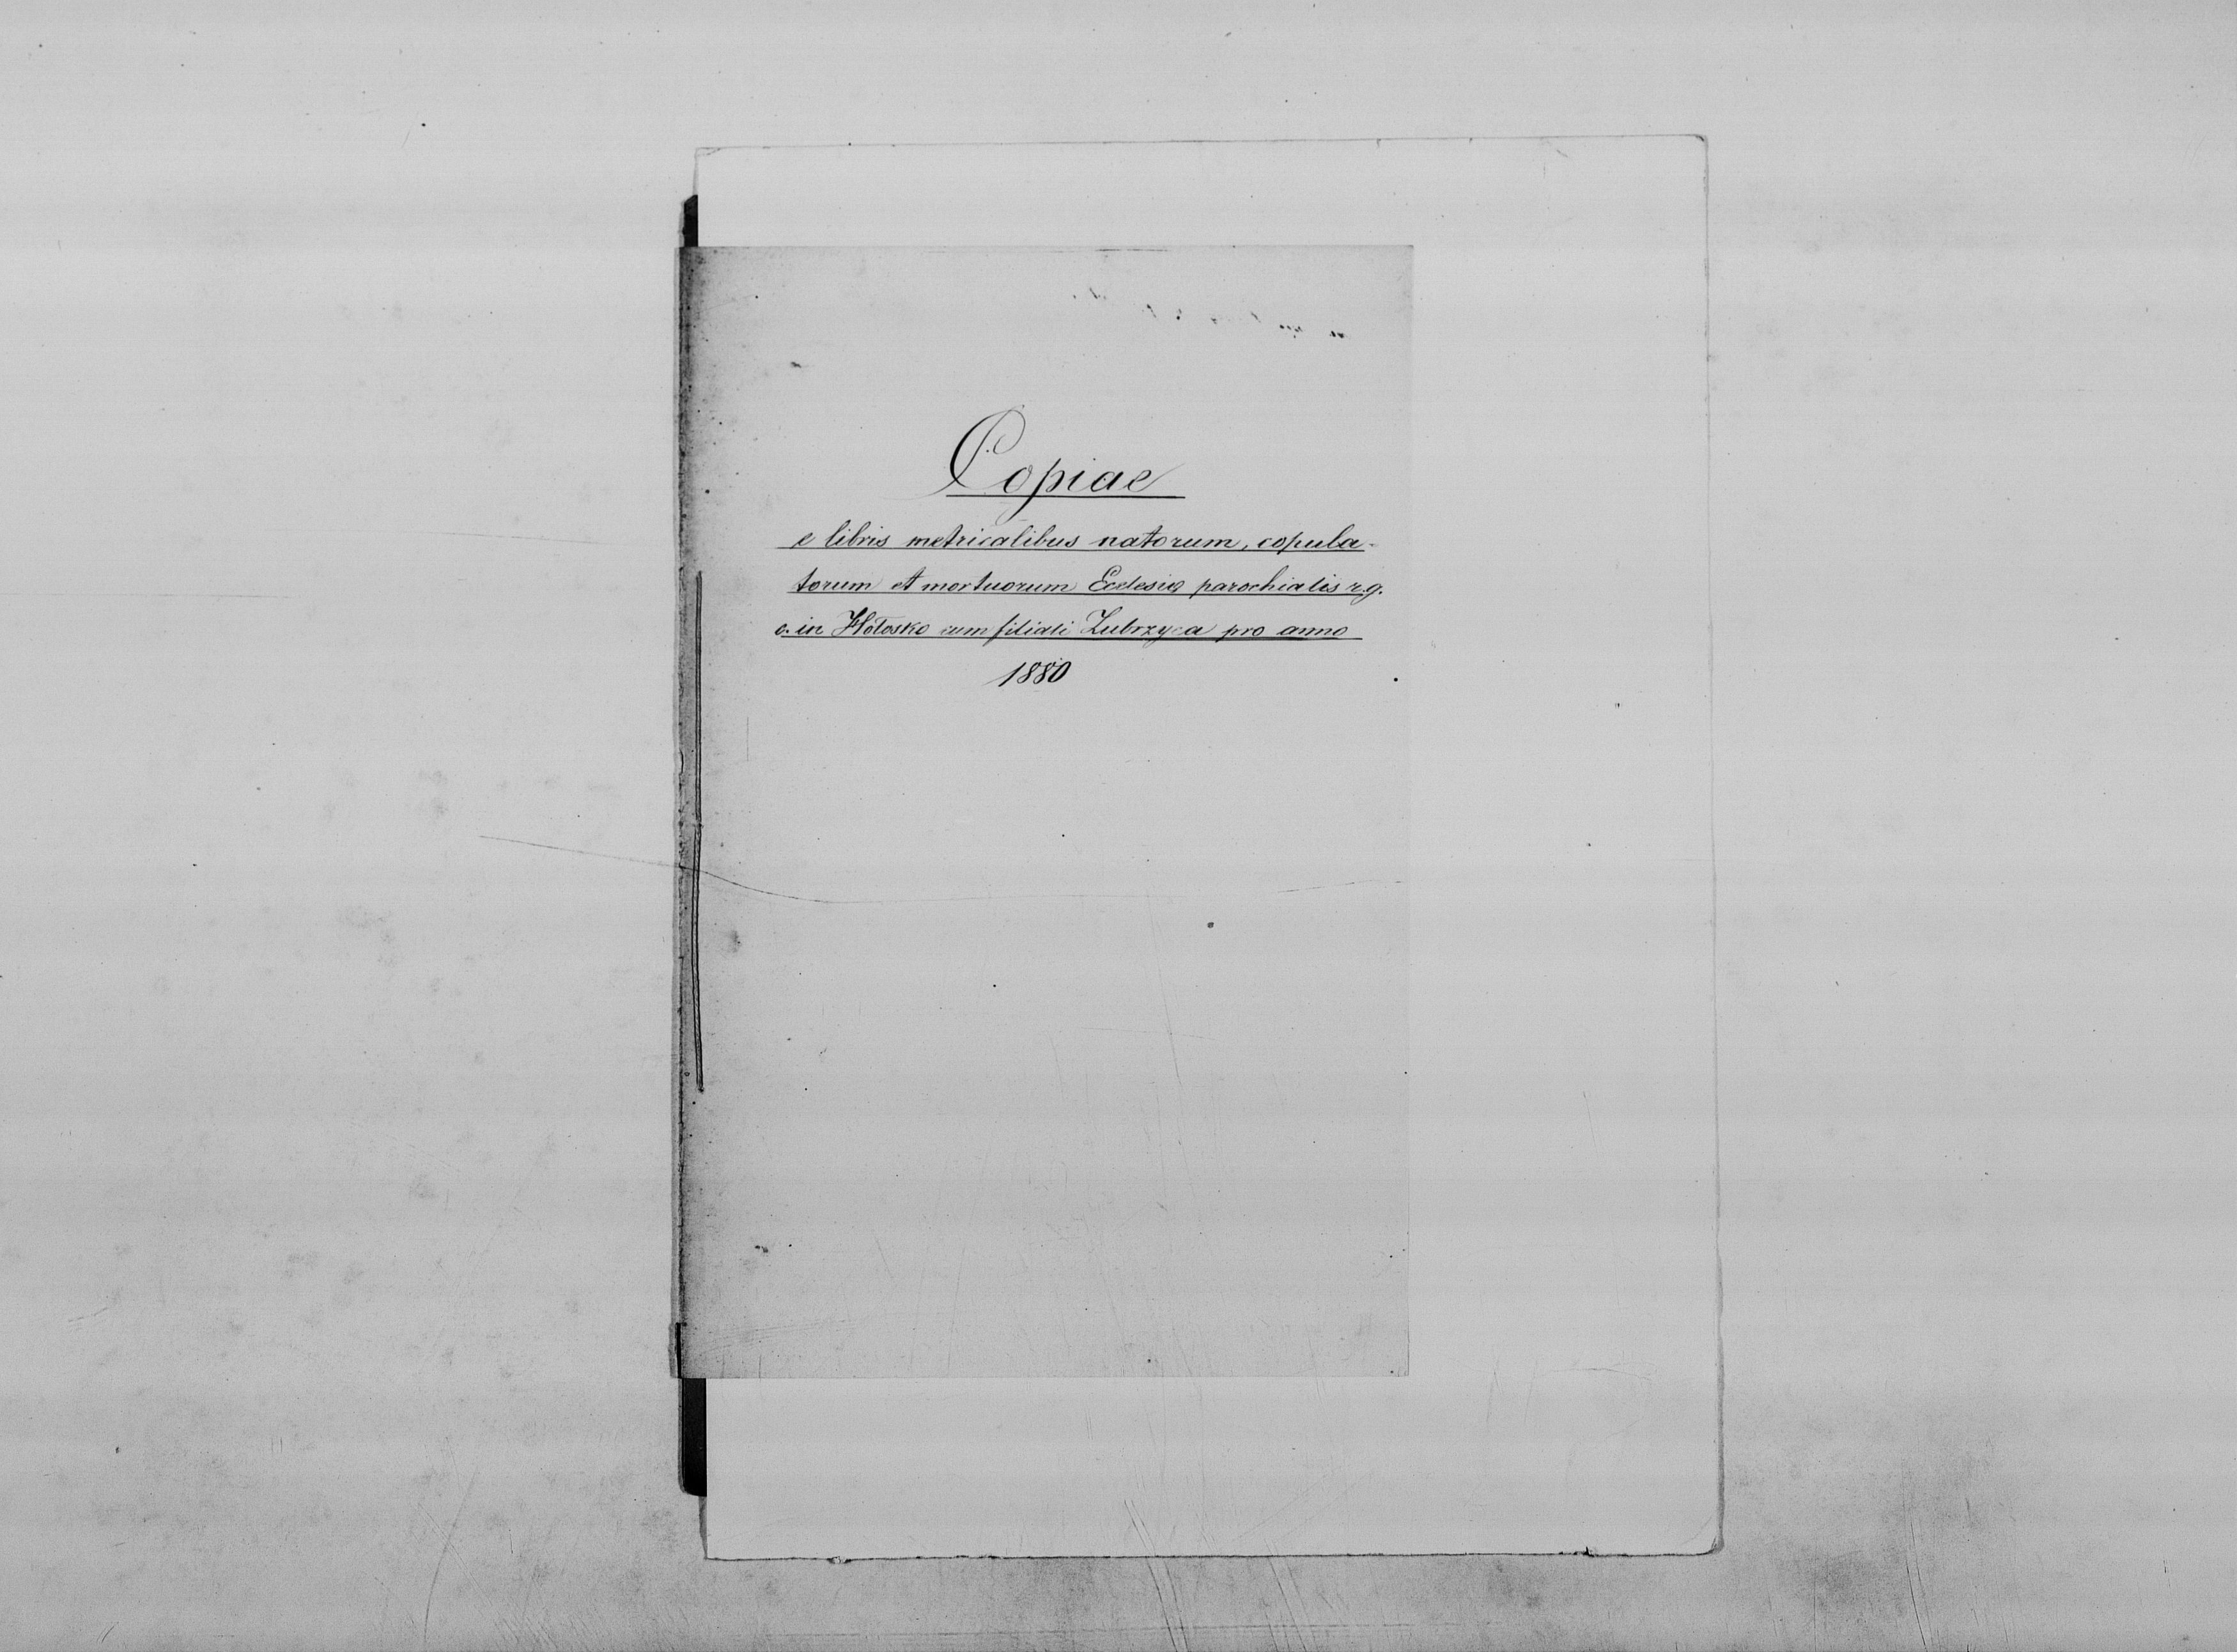 Copiae
e libris metricalibus natorum, copula-
torum et mortuorum Ecclesiæ parochialis r.g.
c. in Hołosko cum filiali Zubrzyca pro anno
1880